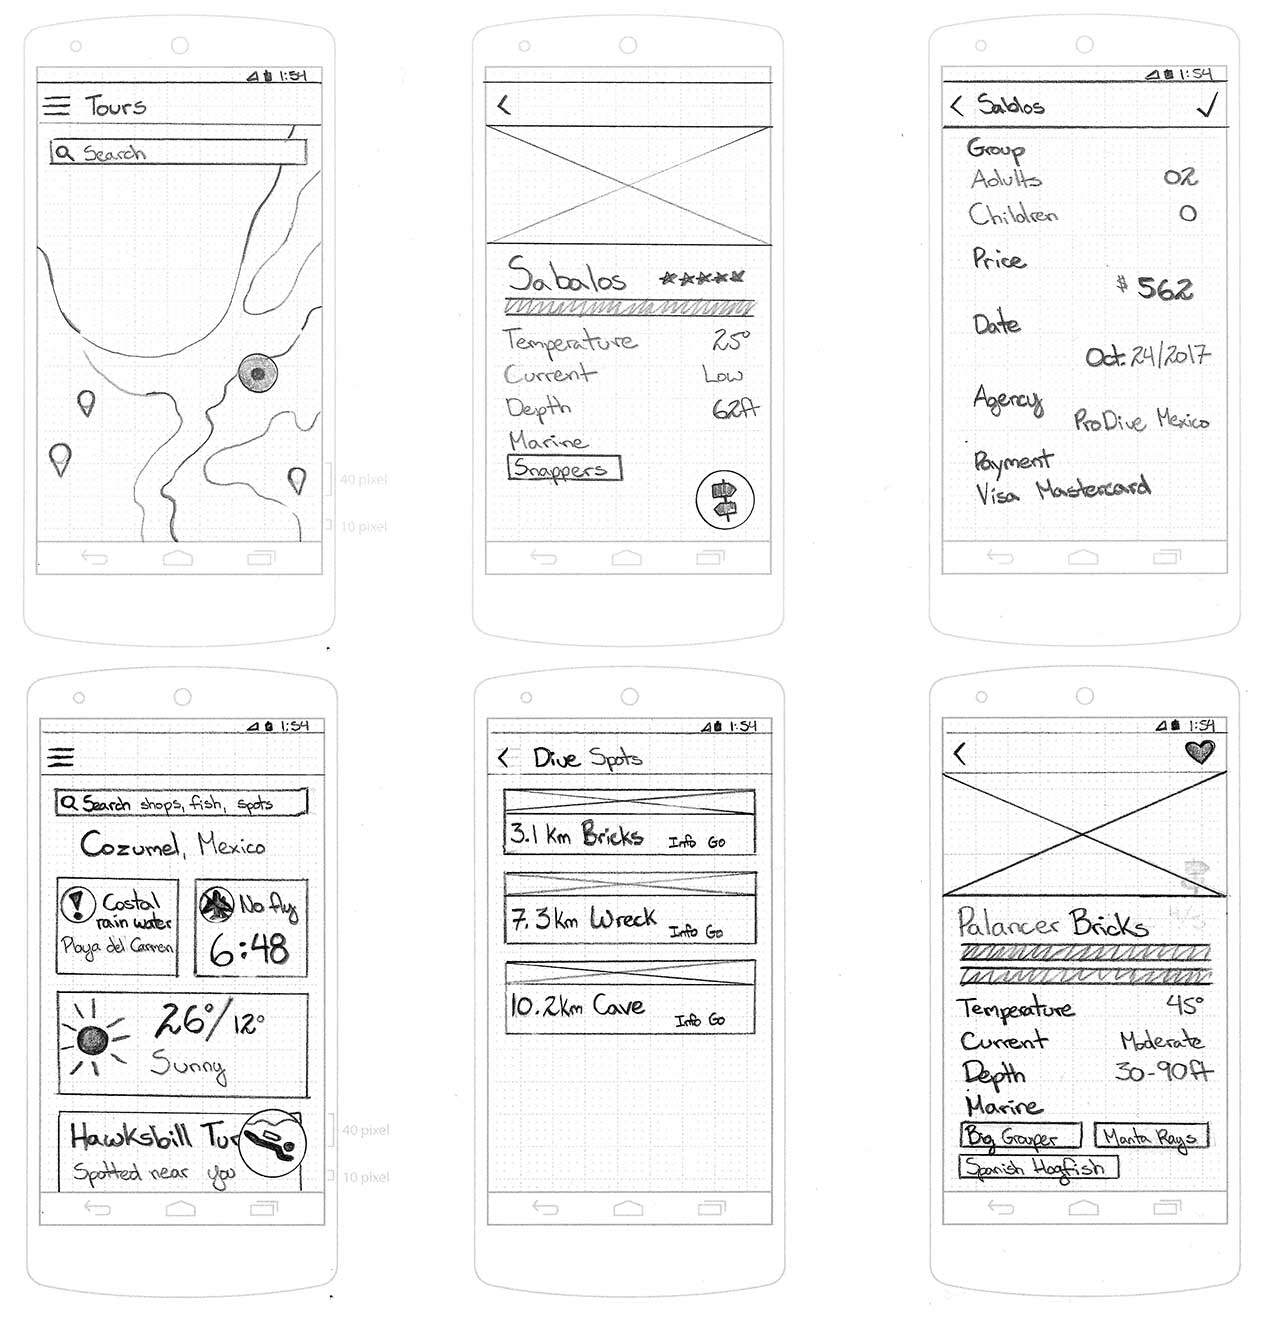 1:54
Tours
Search
40 pixel
10 pixel
<
Sabalos ★★★★★
Temperature 25°
Current Low
Depth 62ft
Marine
Snappers
1:54
< Sablos ✓
Group
Adults 02
Children 0
Price
$ 562
Date
Oct. 24/2017
Agency
ProDive Mexico
Payment
Visa Mastercard
1:54
Search shops, fish, spots
Cozumel, Mexico
! Costal
rain water
Playa del Carmen
No fly
6:48
26°/12°
Sunny
Hawksbill Tur
Spotted near you
40 pixel
10 pixel
1:54
< Dive Spots
3.1 km Bricks Info Go
7.3 km Wreck Info Go
10.2 km Cave Info Go
1:54
<
Palancer Bricks
Temperature 45°
Current Moderate
Depth 30-90ft
Marine
Big Grouper Manta Rays
Spanish Hogfish